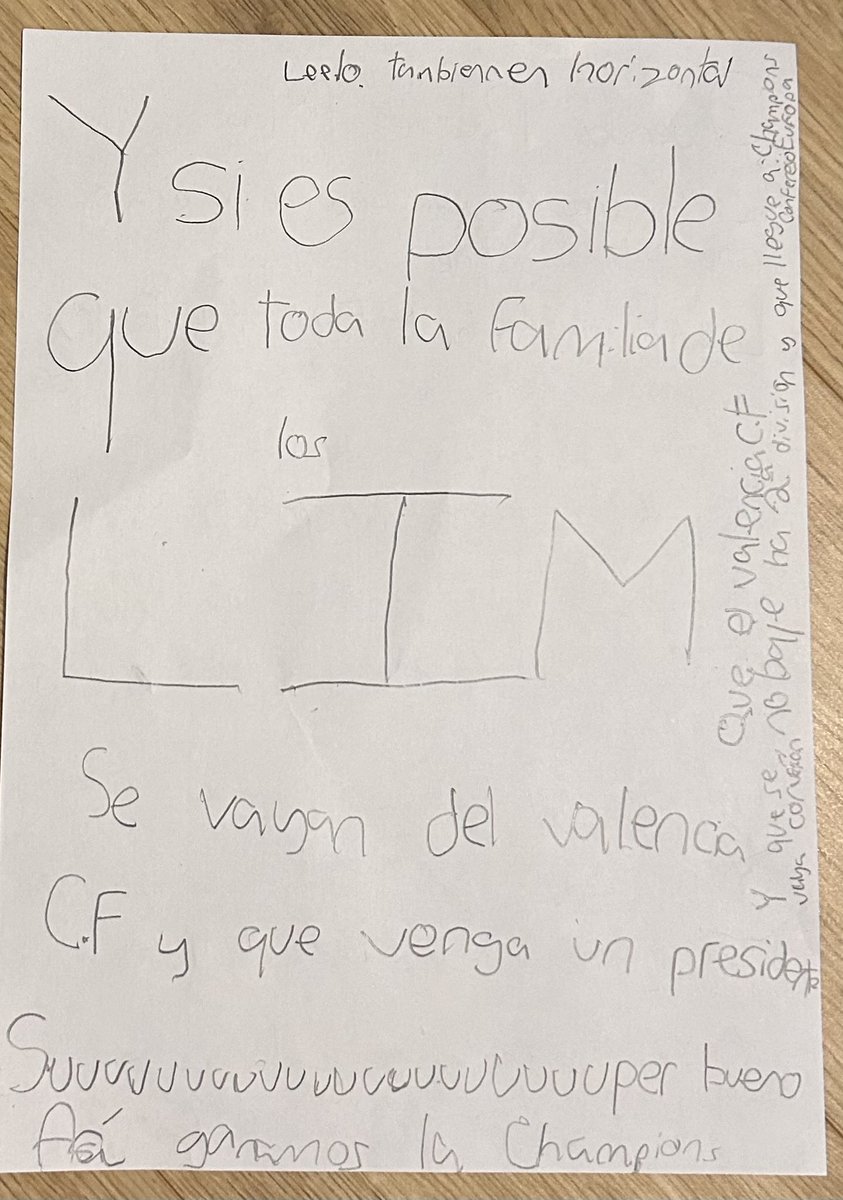 Leelo tambien en horizontal
Y si es posible
que toda la familia de
los
LIM
Se vayan del valencia
C.F y que venga un presidente
Suuuuuuuuuuuuuuuuuuuuuper bueno
Así ganamos la Champions
Que el valencia C.F
no baje ha 2a división y que llegue a: Champions
Y que se vaya corberán